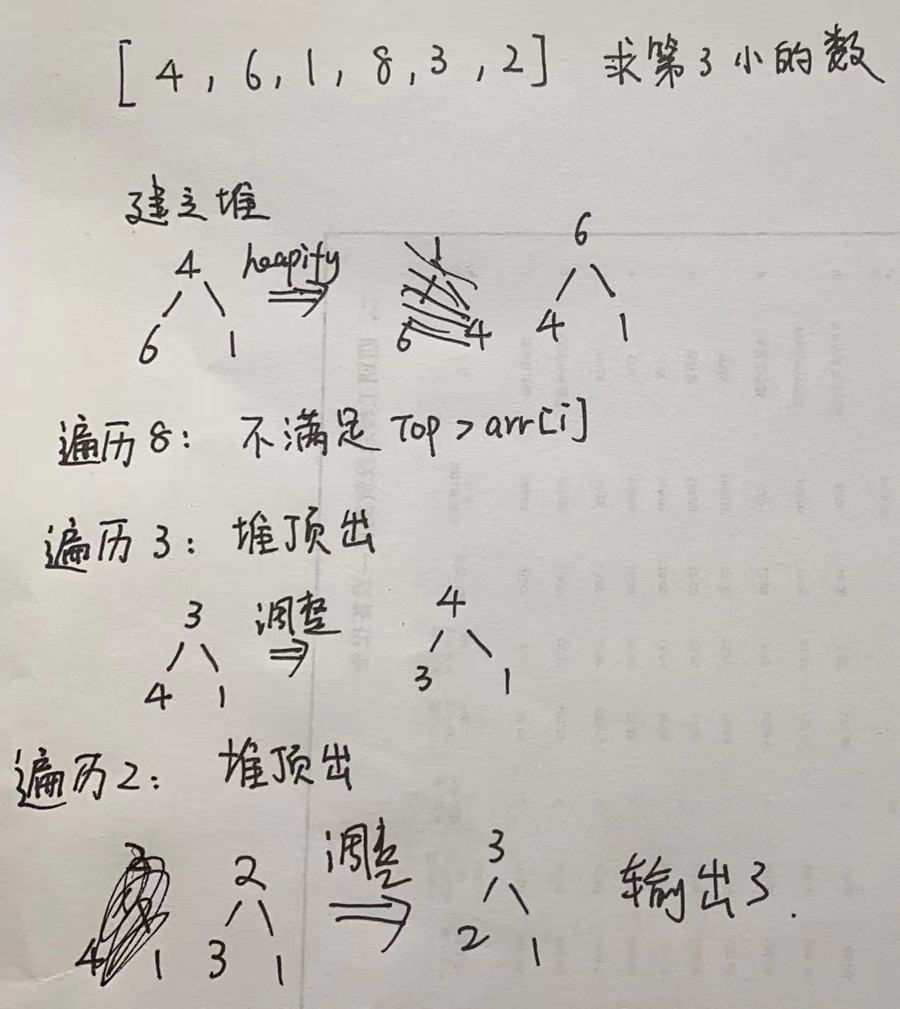 [ 4 , 6 , 1 , 8 , 3 , 2 ] 求第3小的数
建立堆
4 heapify ⇒ 6
6 1 6 4 4 1
遍历8: 不满足 Top > arr[i]
遍历3: 堆顶出
3 调整 ⇒ 4
4 1 3 1
遍历2: 堆顶出
2 调整 ⇒ 3 输出3.
4 1 3 1 2 1